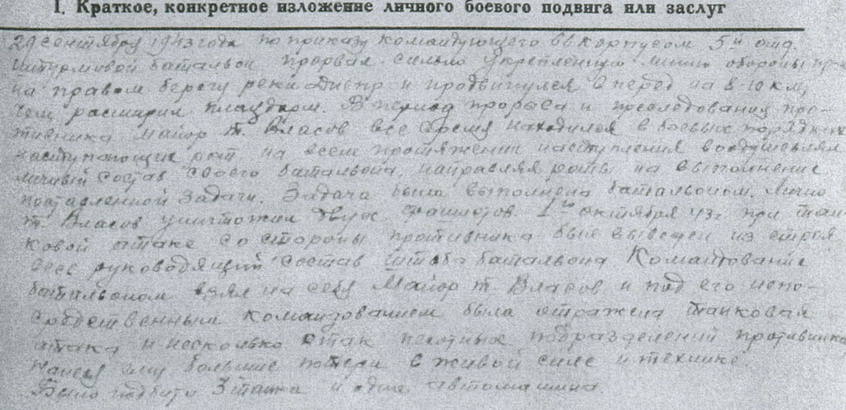 I. Краткое, конкретное изложение личного боевого подвига или заслуг
29 сентября 1943 года по приказу командующего 66 корпусом 5й отд.
штурмовой батальон прорвал сильно укрепленную линию обороны пр-ка
на правом берегу реки Днепр и продвинулся вперед на 8-10 км,
чем расширил плацдарм. В период прорыва и преследования про-
тивника майор т. Власов все время находился в боевых порядках
наступающих рот на всем протяжении наступления воодушевляя
личный состав своего батальона, направляя роты на выполнение
поставленной задачи. Задача была выполнена батальоном. Лично
т. Власов уничтожил двух фашистов. 1го октября 43г. при тан-
ковой атаке со стороны противника был выведен из строя
весь руководящий состав штаба батальона Командование
батальоном взял на себя Майор т. Власов и под его непо-
средственным командованием была отражена танковая
атака и несколько атак пехотных подразделений противника
нанеся ему большие потери в живой силе и технике.
Было подбито 3 танка и одна автомашина